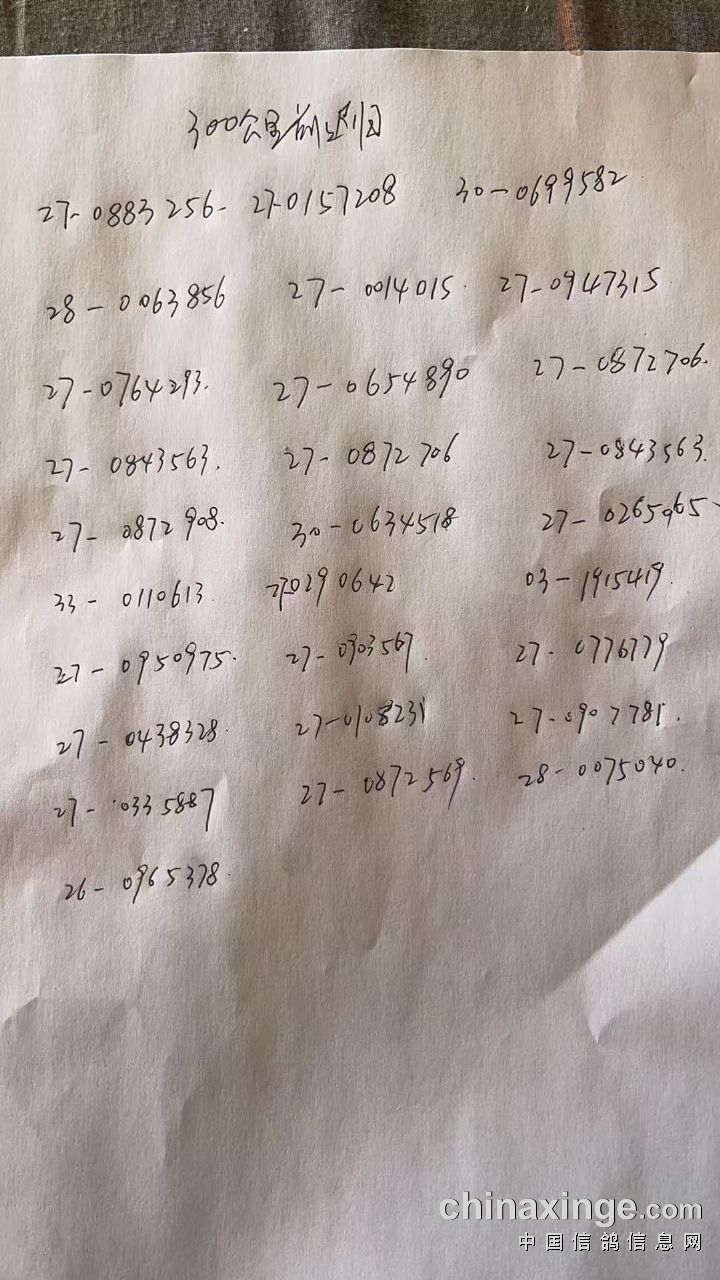 300公里前迟归
27-0883256- 27-0157208 30-0699582
28-0063856 27-0014015. 27-0947315
27-0764293. 27-0654890 27-0872706.
27-0843563. 27-0872706 27-0843563.
27-0872908. 30-0634518 27-0265965
33-0110613 27-0290642 03-1915419.
27-0950975. 27-0903567. 27-0776779
27-0438328. 27-0108231 27-0907781.
27-0335887 27-0872569. 28-0075040.
26-0965378.
chinaxinge.com
中国信鸽信息网